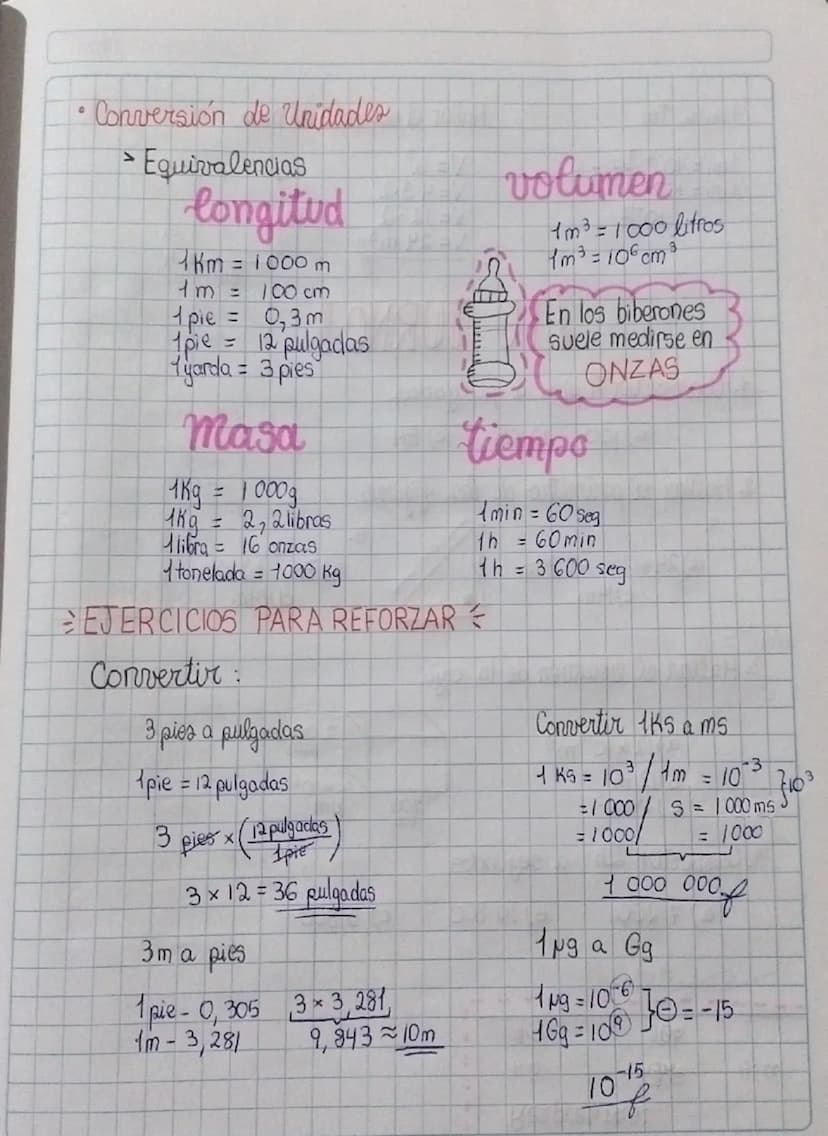 • Conversión de Unidades
> Equivalencias
longitud
1Km = 1000 m
1m = 100 cm
1pie = 0,3 m
1pie = 12 pulgadas
1yarda = 3 pies
volumen
1m³ = 1000 litros
1m³ = 10⁶ cm³
En los biberones
suele medirse en
ONZAS
masa
1Kg = 1000g
1Kg = 2,2 libras
1libra = 16 onzas
1tonelada = 1000 Kg
tiempo
1min = 60 seg
1h = 60 min
1h = 3 600 seg
EJERCICIOS PARA REFORZAR
Convertir:
3 pies a pulgadas
1pie = 12 pulgadas
3 pies × (12 pulgadas / 1pie)
3 × 12 = 36 pulgadas
3m a pies
1pie - 0,305
1m - 3,281
3 × 3,281
9,843 ≈ 10m
Convertir 1Ks a ms
1 Ks = 10³ / 1m = 10⁻³ } 10³
= 1000 / s = 1000 ms
= 1000 / = 1000
1 000 000
1μg a Gg
1μg = 10⁻⁶
1Gg = 10⁹ } ⊖ = -15
10⁻¹⁵